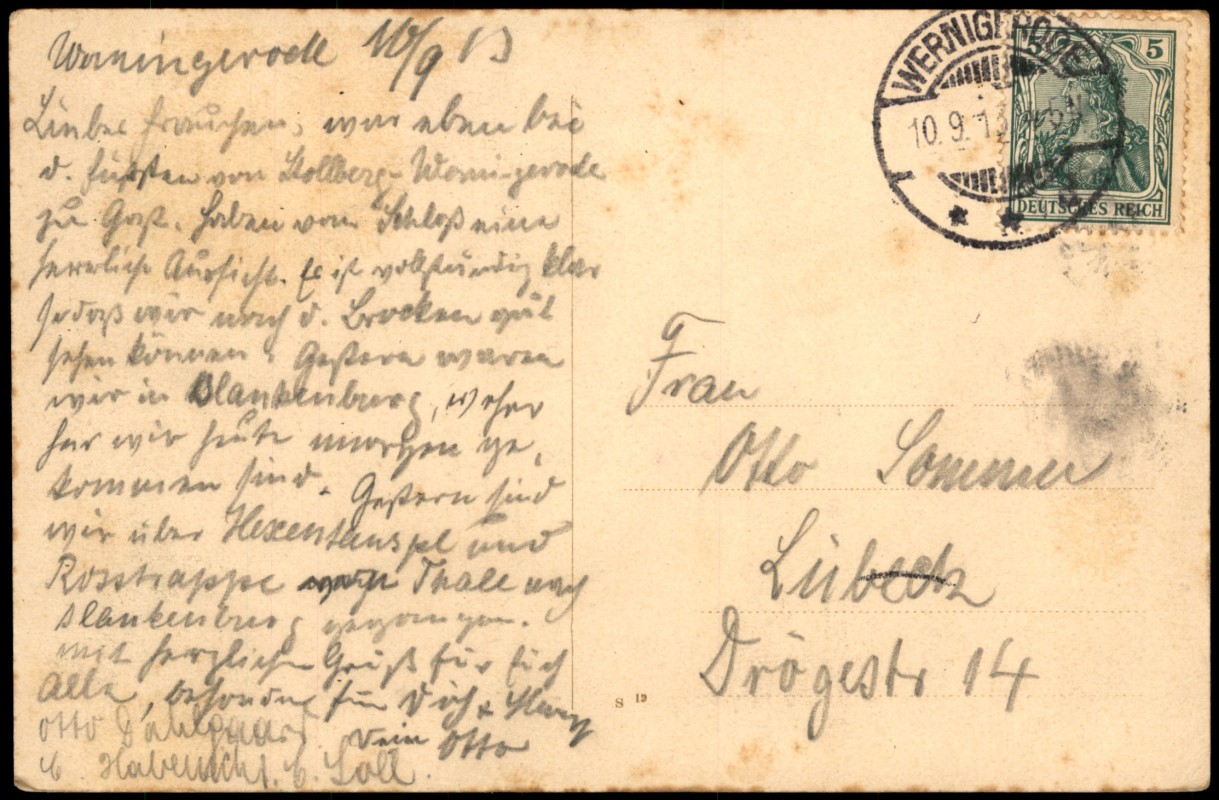 Wernigerode 10/9 13
Liebes Frauchen, war eben bei
d. Fürsten von Stollberg-Wernigerode
zu Gast. Haben vom Schloß eine
herrliche Aussicht. Es ist vollständig klar
sodaß wir nach d. Brocken gut
sehen können. Gestern waren
wir in Blankenburg, woher
her wir heute morgen ge-
kommen sind. Gestern sind
wir über Hexentanzpl und
Rosstrappe Thale nach
Blankenburg gegangen.
mit herzlichem Gruß für Euch
Alle, besonders für Dich &
Otto Dahlgaard Dein Otto
Habenicht.
WERNIGERODE
10.9.13
5
DEUTSCHES REICH
Frau
Otto Sommer
Lübeck
Drögestr 14
S 13